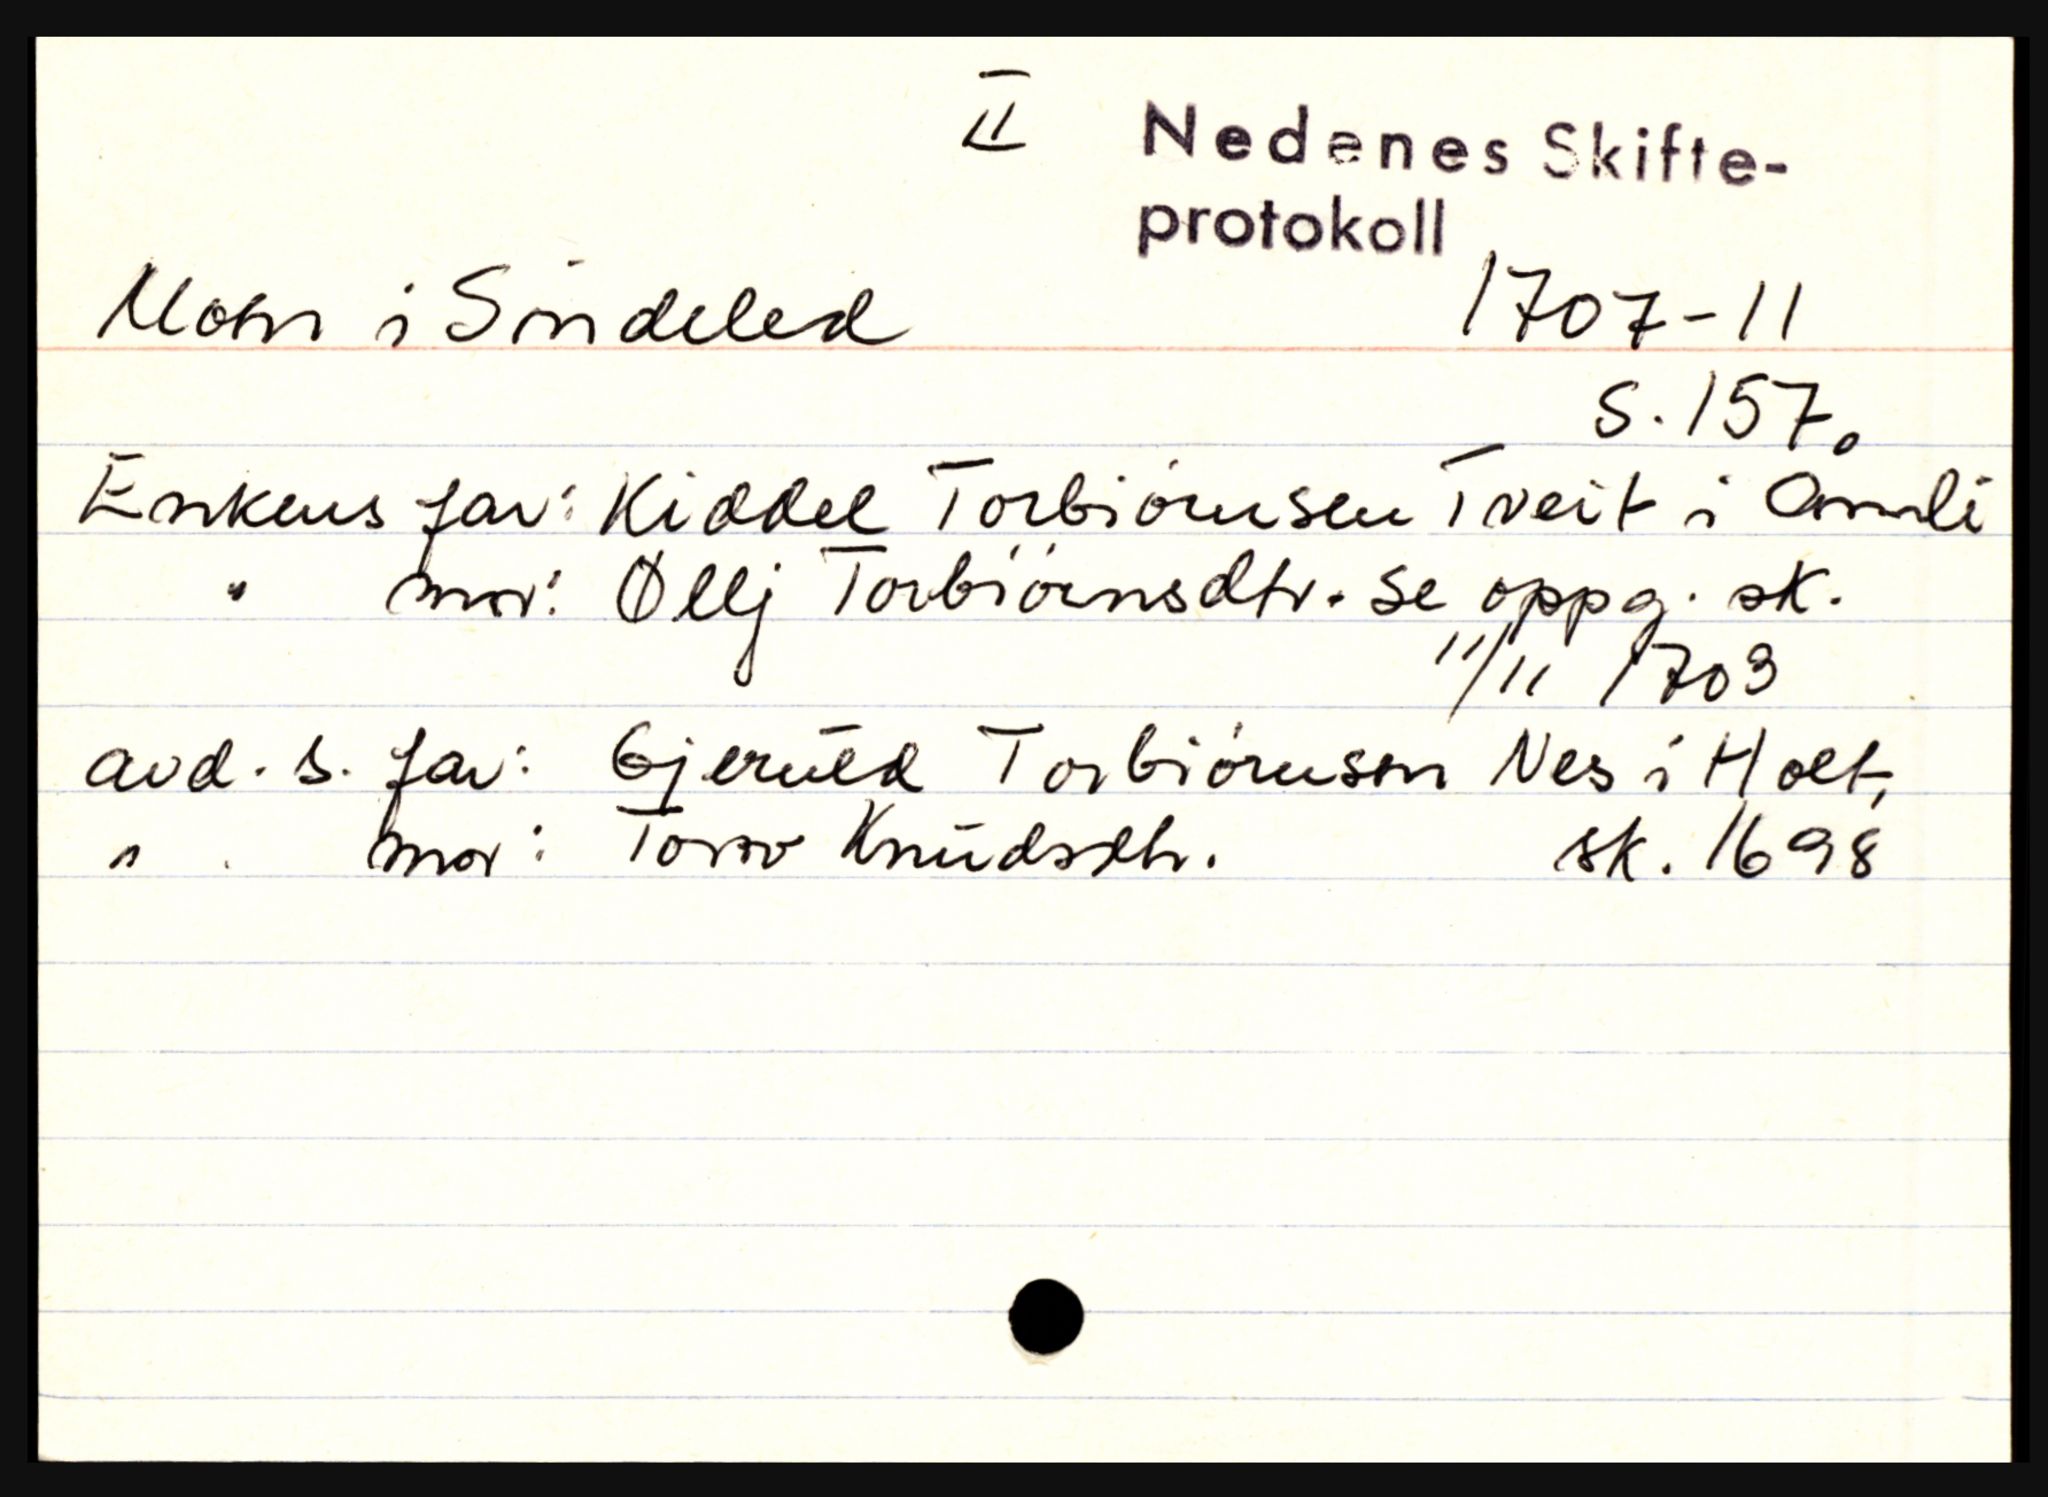 II
Nedenes Skifte-
protokoll
Moen i Sindeled
1707-11
S. 157.
Enkens far: Kiddel Torbiørnsen Tveit i Åmli
" mor: Ølli Torbiørnsdtr. se oppg. sk.
11/11 1703
avd. s. far: Gjeruld Torbiørnsen Nes i Holt,
" mor: Torov Knudsdtr. sk. 1698